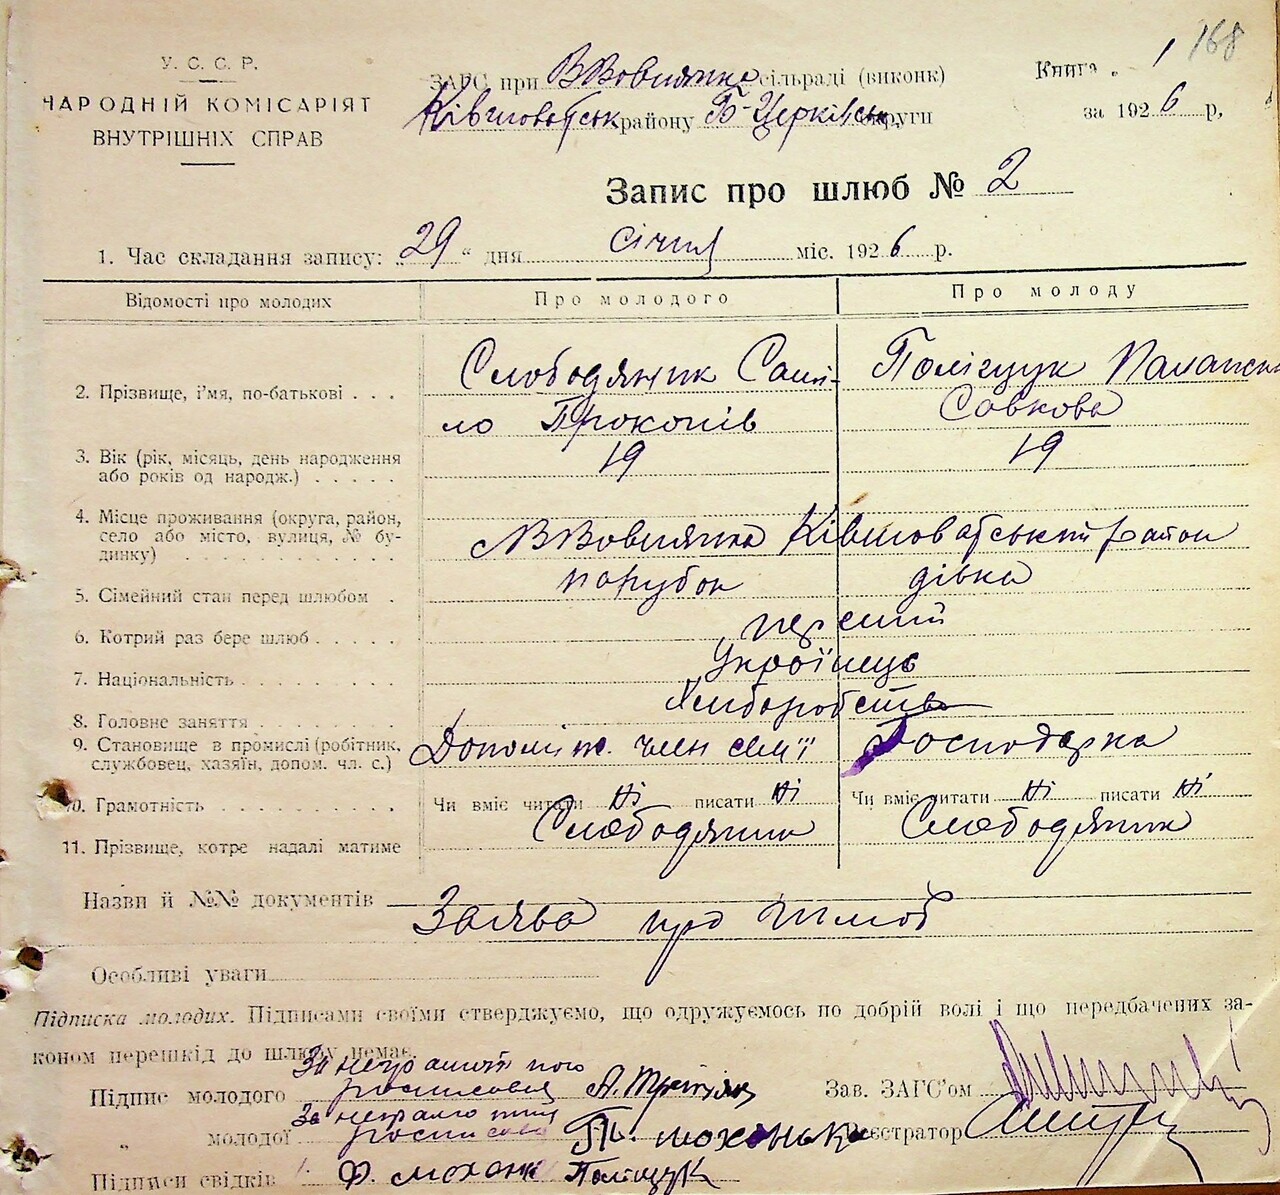 168
У. С. С. Р.
НАРОДНІЙ КОМІСАРІЯТ
ВНУТРІШНІХ СПРАВ
ЗАГС при ВВовнянка сільраді (виконк)
Ківшоватськ району Б-Церківськ. округи
Книга „ 1
за 1926 р,
Запис про шлюб № 2
1. Час складання запису: „29“ дня січня міс. 1926 р.
Відомості про молодих
Про молодого
Про молоду
2. Прізвище, і’мя, по-батькові . . .
Слободяник Самій-
ло Прокопів
Поліщук
Савкова
3. Вік (рік, місяць, день народження
або років од народж.) . . . . .
19
19
4. Місце проживання (округа, район,
село або місто, вулиця, № бу-
динку) . . . . . . . . .
ВВовнянка Ківшоватський район
5. Сімейний стан перед шлюбом .
парубок
дівка
6. Котрий раз бере шлюб . . . . .
перший
7. Національність . . . . . . . .
Українець
8. Головне заняття . . . . . . .
Хлиборобство
9. Становище в промислі (робітник,
службовец, хазяїн, допом. чл. с.)
Допоміж. член сем'ї
Господарка
10. Грамотність . . . . . . . . .
Чи вміє читати Ні писати Ні
Чи вміє читати Ні писати Ні
11. Прізвище, котре надалі матиме
Слободяник
Слободяник
Назви й №№ документів
Заява про шлюб
Особливі уваги
Підписка молодих. Підписами своїми стверджуємо, що одружуємось по добрій волі і що передбачених за-
коном перешкід до шлюбу немає.
Підпис молодого
За неграмотного
росписався А. Третяк
Зав. ЗАГС'ом
„ молодої
За неграмотну
росписався
Реєстратор
Підписи свідків 1. Поліщук